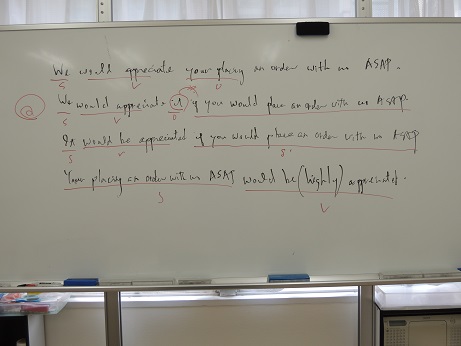 We would appreciate your placing an order with us ASAP.
S V O
@ We would appreciate it if you would place an order with us ASAP
S V O
It would be appreciated if you would place an order with us ASAP
S V S'
Your placing an order with us ASAP would be (highly) appreciated.
S V